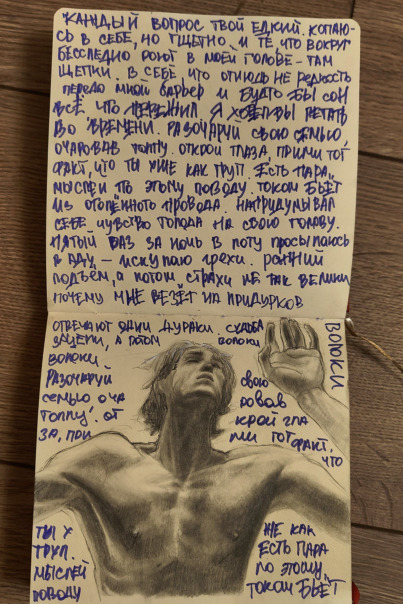 КАЖДЫЙ ВОПРОС ТВОЙ ЕДКИЙ. КОПАЮ-
СЬ В СЕБЕ, НО ТЩЕТНО, И ТЕ, ЧТО ВОКРУГ
БЕССЛЕДНО РОЮТ В МОЕЙ ГОЛОВЕ - ТАМ
ЩЕПКИ. В СЕБЕ, ЧТО ОТНЮДЬ НЕ РЕДКОСТЬ
ПЕРЕДО МНОЙ БАРЬЕР И БУДТО БЫ СОН
ВСЁ, ЧТО ПЕРЕЖИЛ. Я ХОТЕЛ БЫ ЛЕТАТЬ
ВО ВРЕМЕНИ. РАЗОЧАРУЙ СВОЮ СЕМЬЮ,
ОЧАРОВАВ ТОЛПУ. ОТКРОЙ ГЛАЗА, ПРИМИ ТОТ
ФАКТ, ЧТО ТЫ УЖЕ КАК ТРУП. ЕСТЬ ПАРА
МЫСЛЕЙ ПО ЭТОМУ ПОВОДУ. ТОКОМ БЬЁТ
ИЗ ОГОЛЁННОГО ПРОВОДА. НАПРИДУМЫВАЛ
СЕБЕ ЧУВСТВО ГОЛОДА НА СВОЮ ГОЛОВУ.
ПЯТЫЙ РАЗ ЗА НОЧЬ В ПОТУ ПРОСЫПАЮСЬ
В АДУ, – ИСКУПАЮ ГРЕХИ. РАННИЙ
ПОДЪЕМ, А ПОТОМ СТРАХИ НЕ ТАК ВЕЛИКИ
ПОЧЕМУ МНЕ ВЕЗЁТ НА ПРИДУРКОВ
ОТВЕЧАЮТ ОДНИ ДУРАКИ. СУДЬБА
ЗАЦЕПИ, А ПОТОМ ВОЛОКИ
ВОЛОКИ
ВОЛОКИ
РАЗОЧАРУЙ СВОЮ
СЕМЬЮ ОЧА РОВАВ
ТОЛПУ. ОТ КРОЙ ГЛА
ЗА, ПРИ МИ ТОТ ФАКТ,
ЧТО
ТЫ У ЖЕ КАК
ТРУП. ЕСТЬ ПАРА
МЫСЛЕЙ ПО ЭТОМУ
ПОВОДУ ТОКОМ БЬЁТ